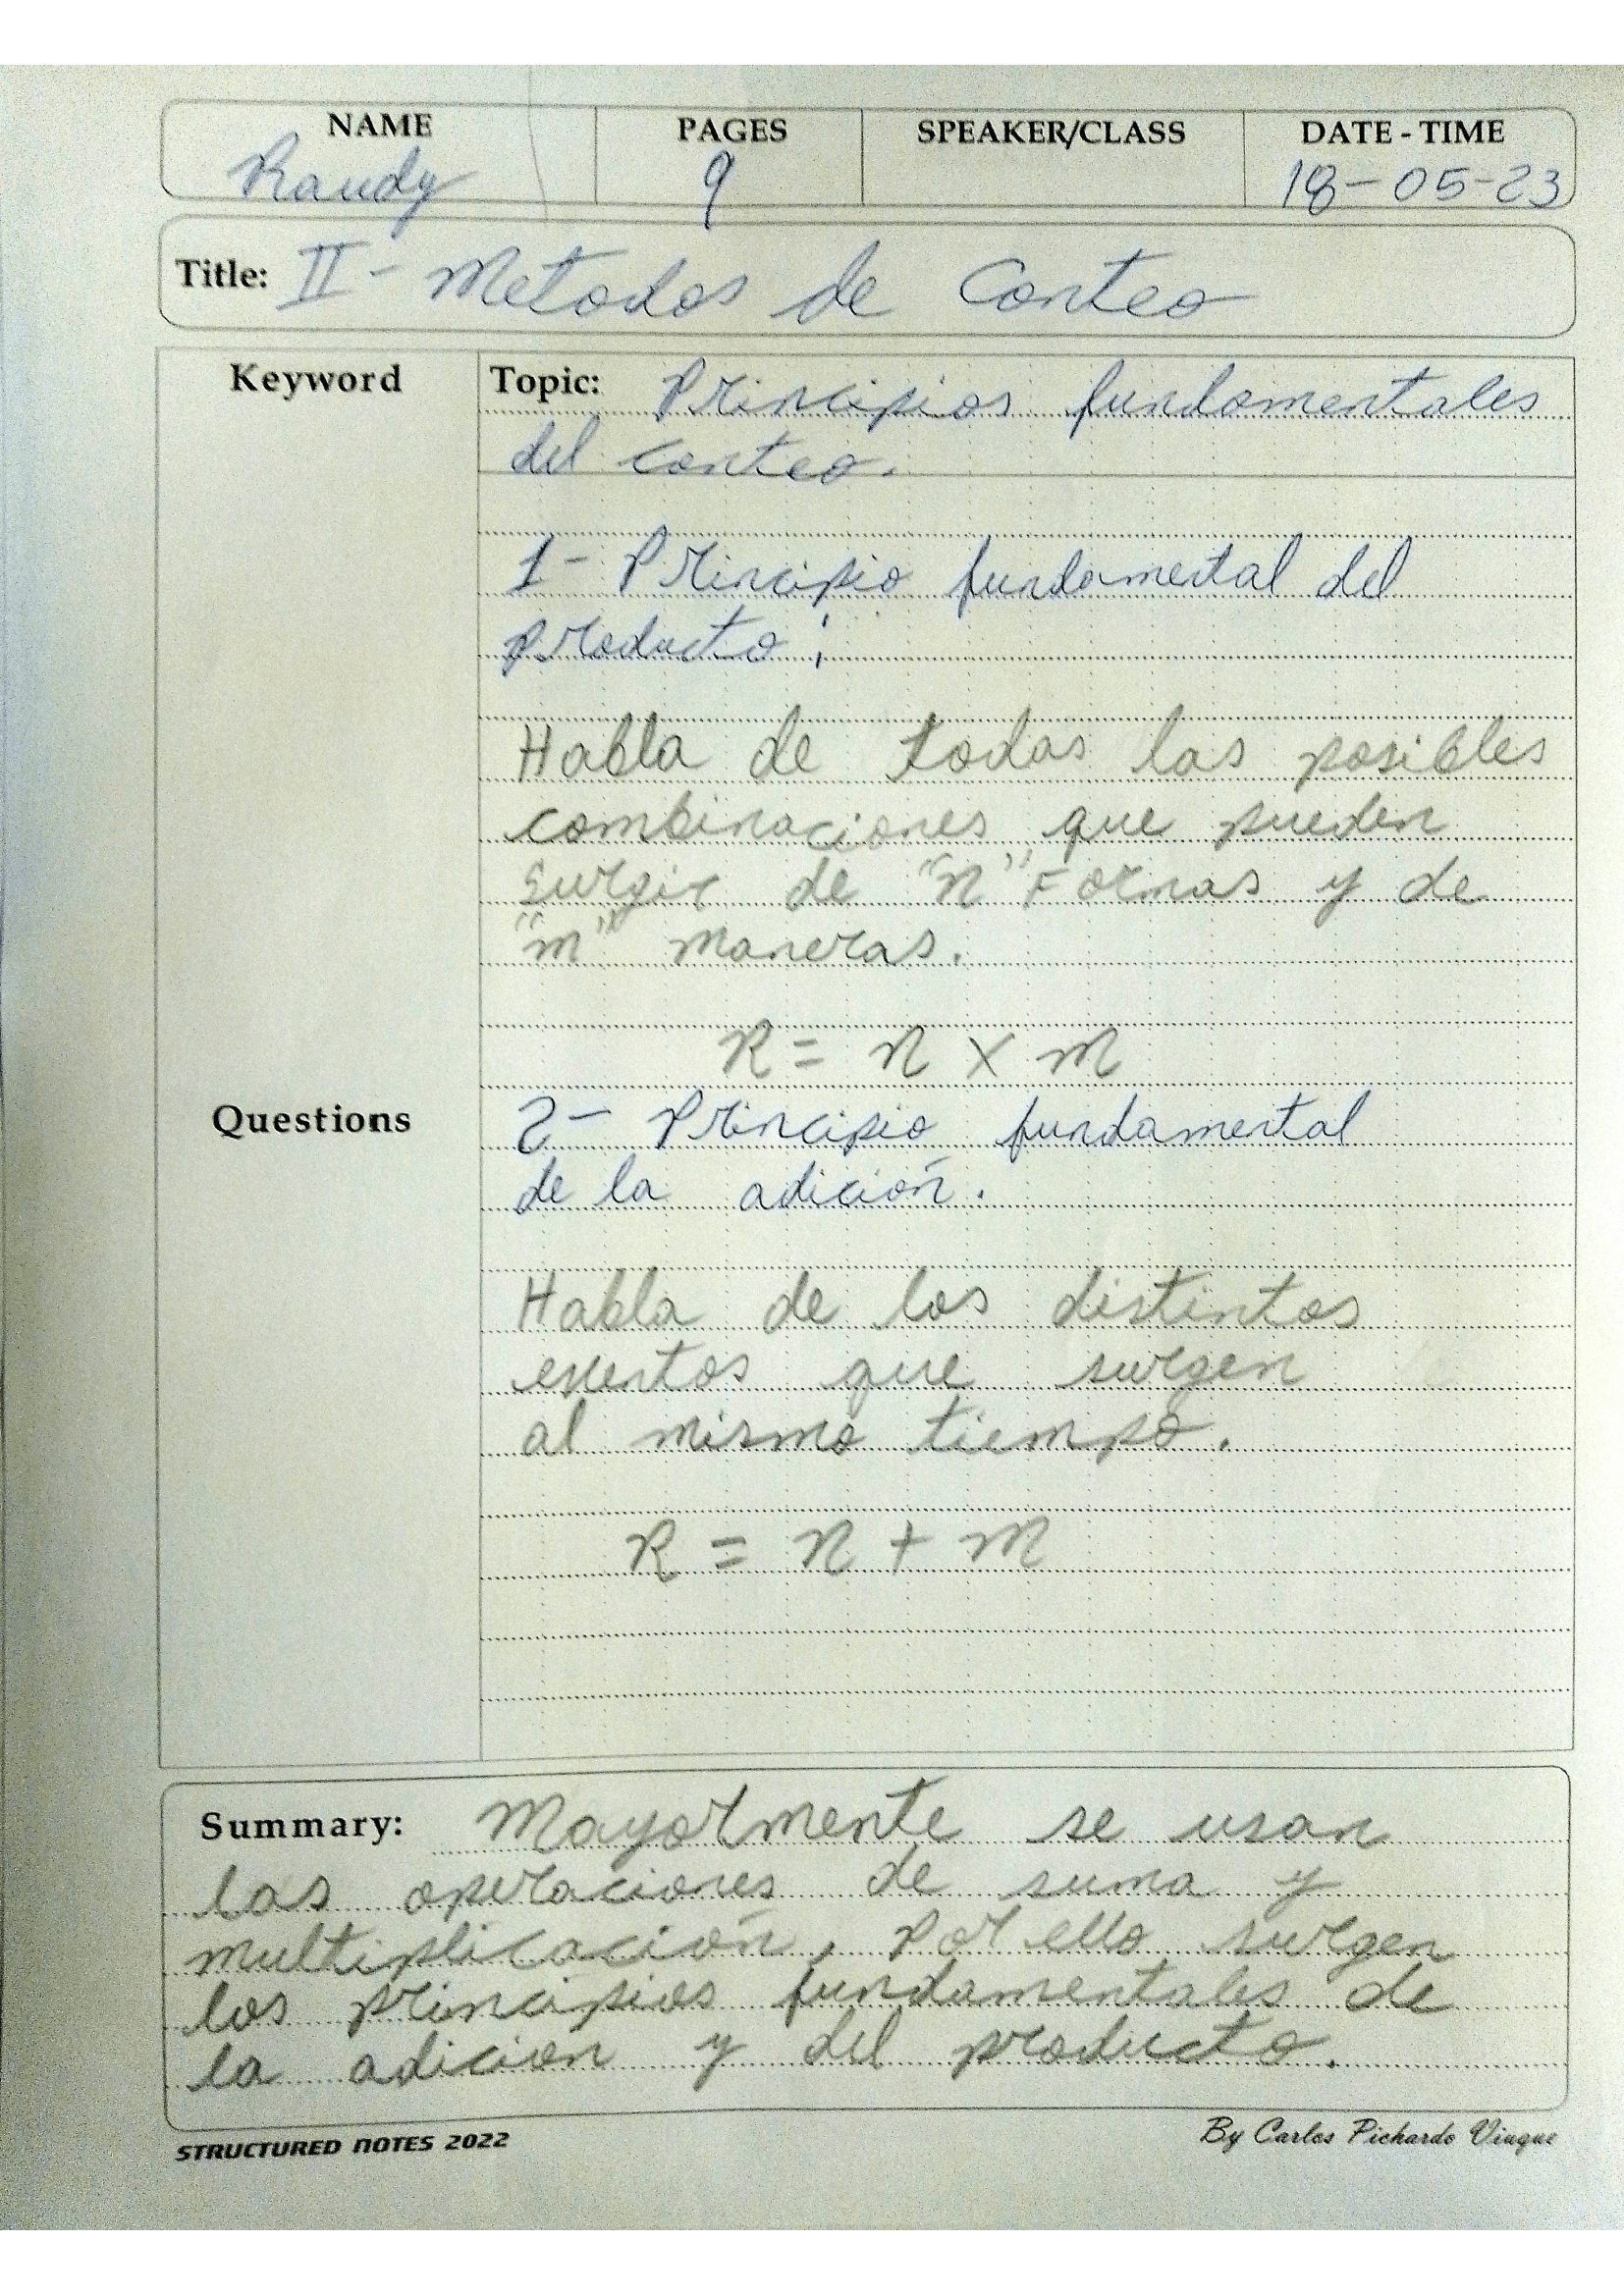 NAME PAGES SPEAKER/CLASS DATE - TIME
Randy 9 18-05-23
Title: II - Metodos de Conteo
Keyword
Topic: Principios fundamentales
del conteo.
1- Principio fundamental del
producto:
Habla de todas las posibles
combinaciones que pueden
surgir de "n" Formas y de
"m" maneras.
R = n x m
Questions
2- Principio fundamental
de la adición.
Habla de los distintos
eventos que surgen
al mismo tiempo.
R = n + m
Summary: Mayormente se usan
las operaciones de suma y
multiplicación, Por ello surgen
los principios fundamentales de
la adición y del producto.
STRUCTURED NOTES 2022 By Carlos Pichardo Viuque